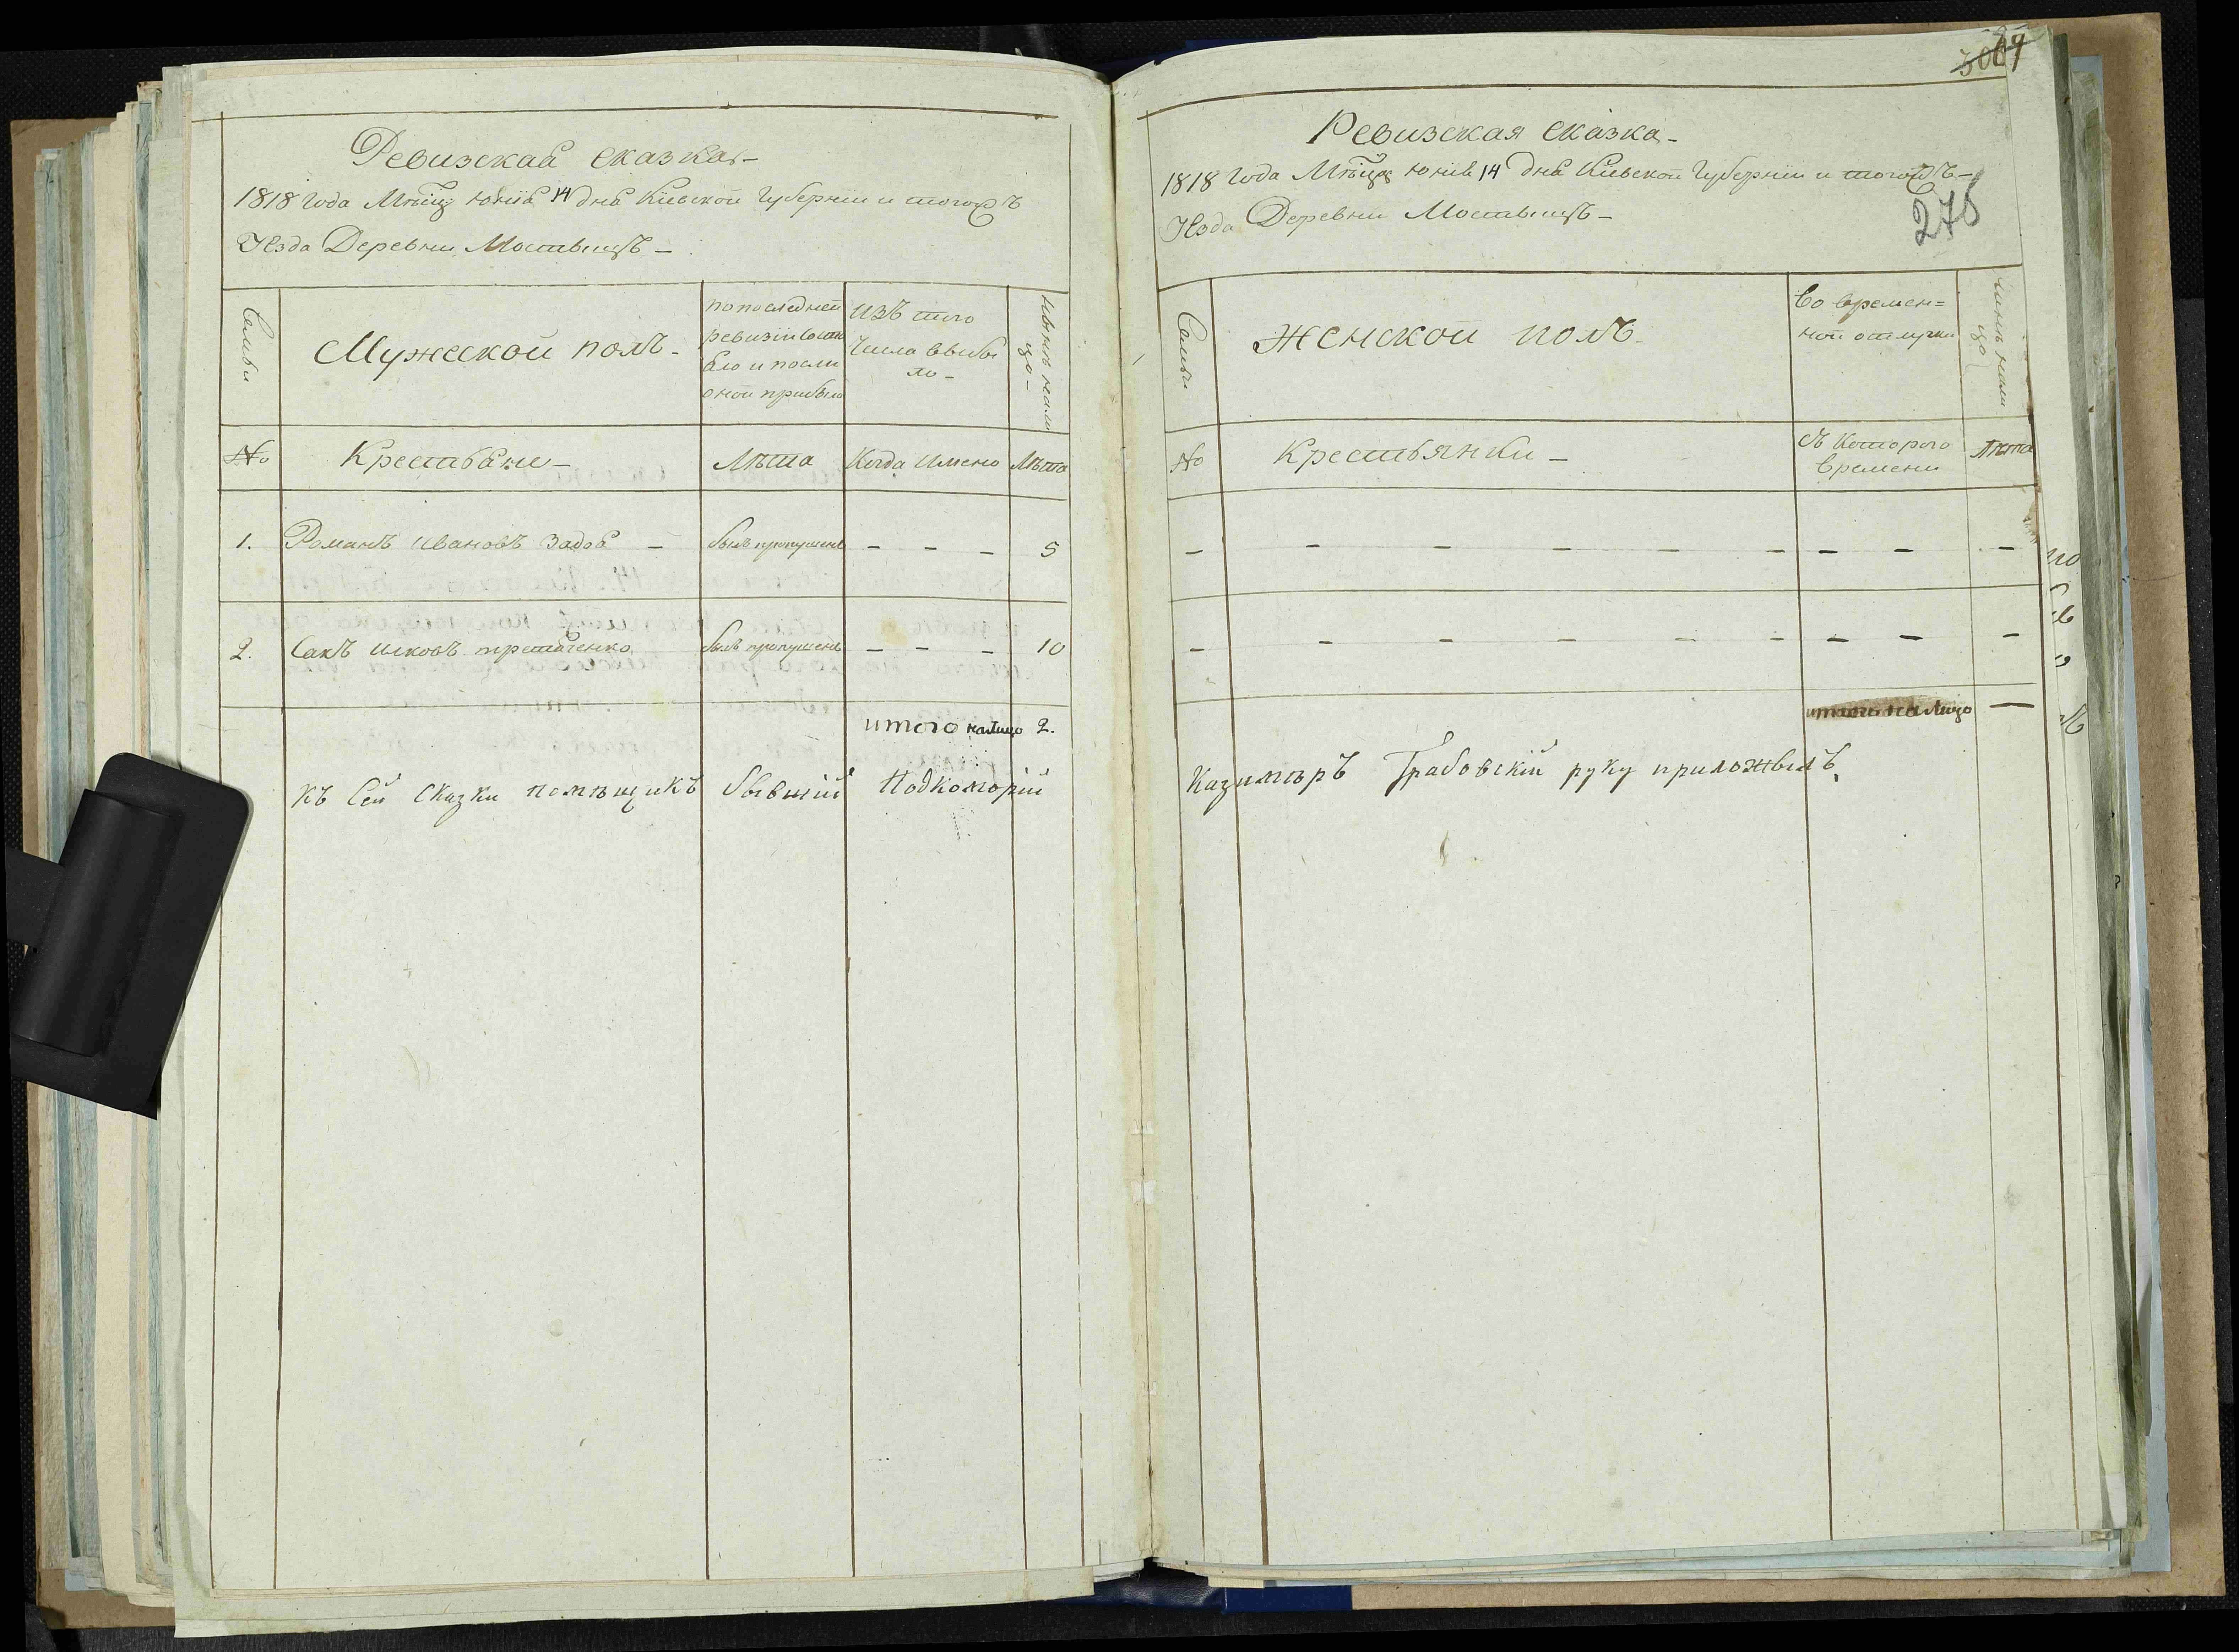 Ревизская сказка –
1818 года Мѣсяц Юнія 14 дня Кіевской Губерніи и тогожъ
Уезда Деревни Мостыщъ –
Семьи
Мужеской полъ –
по последней ревизіи состо
яло и после
оной прибыло
изъ того
числа выбы
ло –
Нынѣ нали
цо –
№
Крестьяне –
Лѣта
Когда имено
Лѣта
1.
Романъ Ивановъ Задоя –
былъ пропущенъ
– – –
5
2.
Сакъ
былъ пропущенъ
– – –
10
итого налицо 2.
Къ сей сказки помѣщикъ бывшій Подкоморій
3069
Ревизская сказка –
1818 года Мѣсяца Юнія 14 дня Кіевской Губерніи и тогожъ –
Уезда Деревни Мостыщъ –
278
Семьи
Женской полъ –
Во времен=
ной отлучки
Нынѣ нали
цо
№
Крестьянки –
Съ Которого
времени
Лѣта
– – – – – – – – –
– – – – – – – – –
итого налицо –
Казимѣръ Грабовскій руку приложылъ